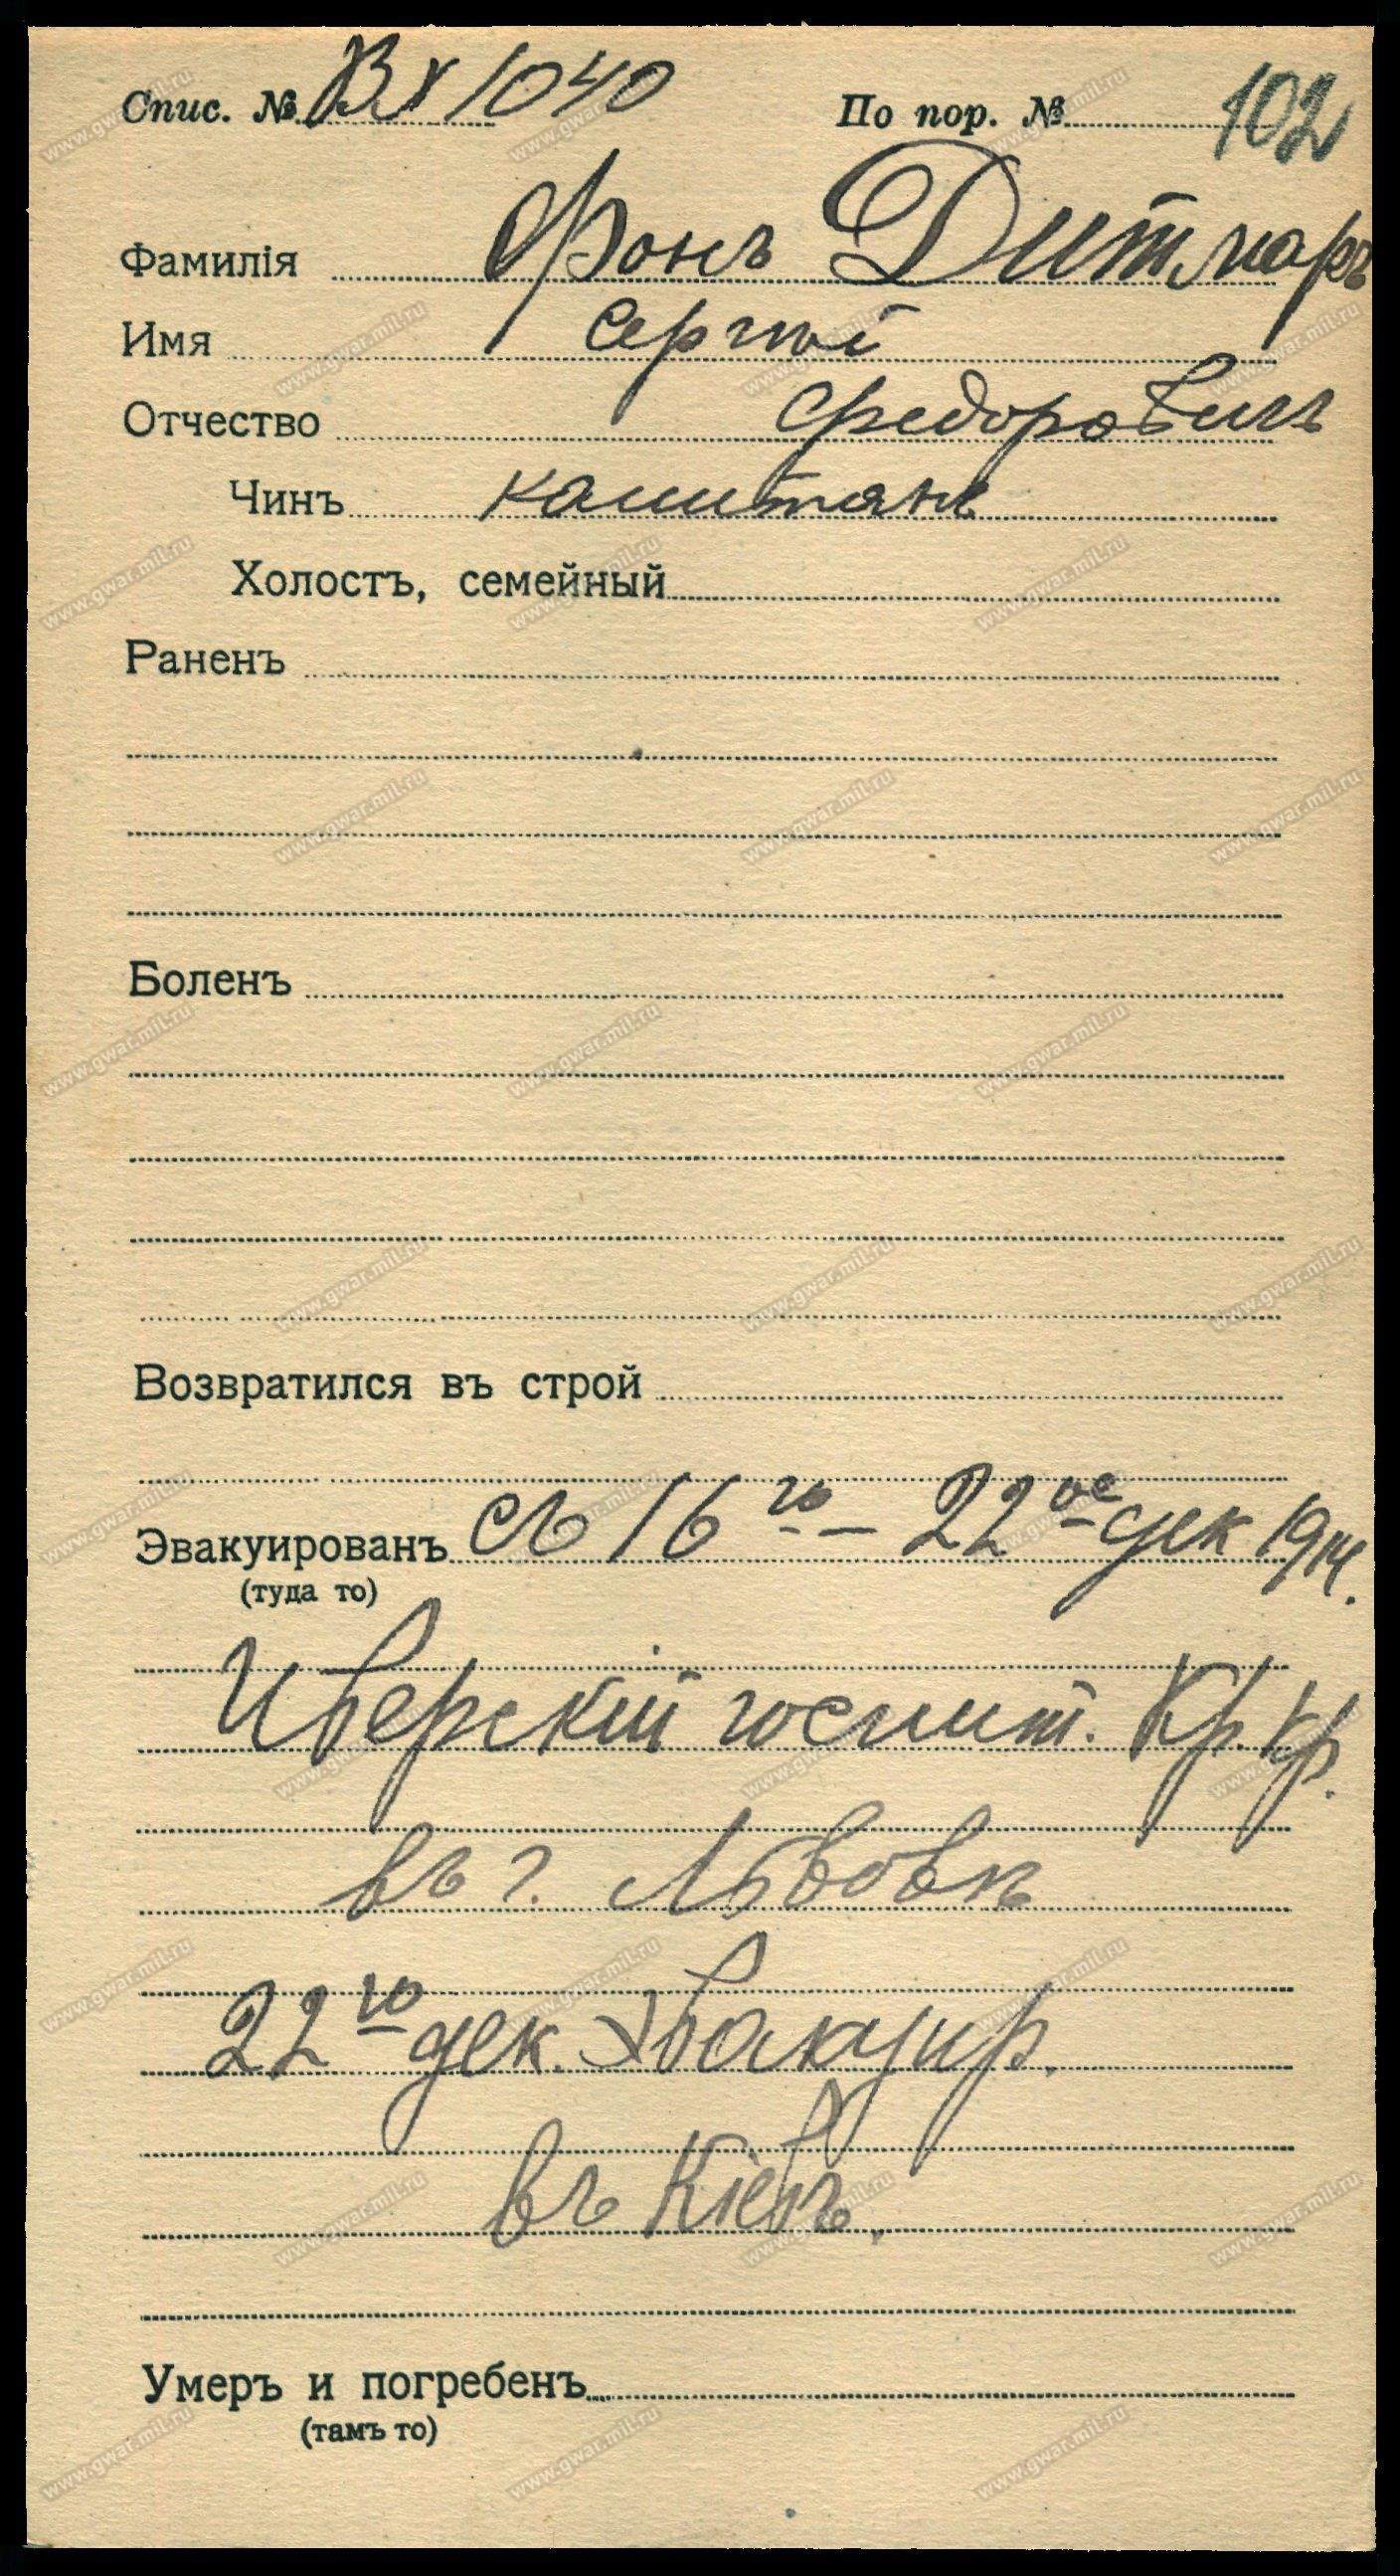 Спис. № Вх 1040 По пор. № 102
Фамилія фонъ Дитмаръ
Имя Сергѣй
Отчество Федоровичъ
Чинъ капитанъ
Холостъ, семейный
Раненъ
Боленъ
Возвратился въ строй
Эвакуированъ съ 16го – 22ое дек 1914.
(туда то)
Иверскій госпит. Кр. Кр.
въ г. Львовѣ
22го дек. Эвакуир.
въ Кіевъ.
Умеръ и погребенъ
(тамъ то)
www.gwar.mil.ru